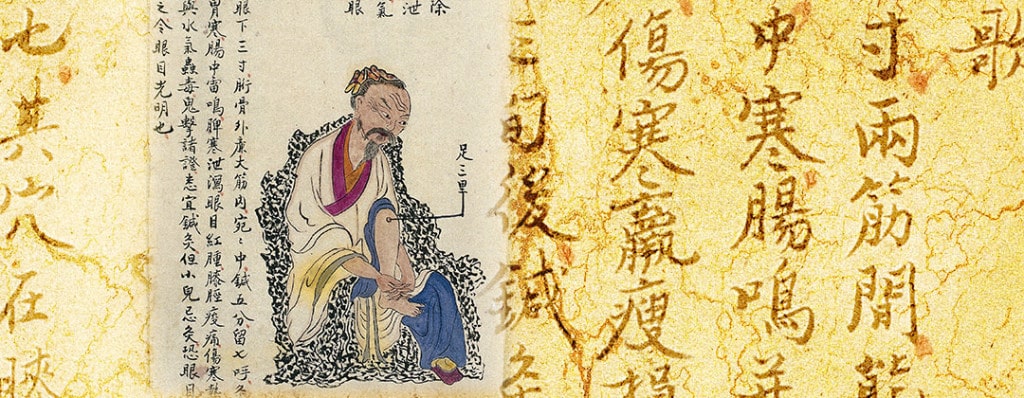 歌
寸兩筋間能
中寒腸鳴并
傷寒羸瘦損
三旬後鍼灸
除
泄
氣
眼
足三里
眼下三寸胻骨外廉大筋內宛〻中鍼五分留七呼灸
胃寒腸中雷鳴脾寒泄瀉眼目紅腫膝脛痠痛傷寒熱
與水氣蟲毒鬼擊諸證悉宜鍼灸但小兒忌灸恐眼目
之令眼目光明也
七其穴在膝